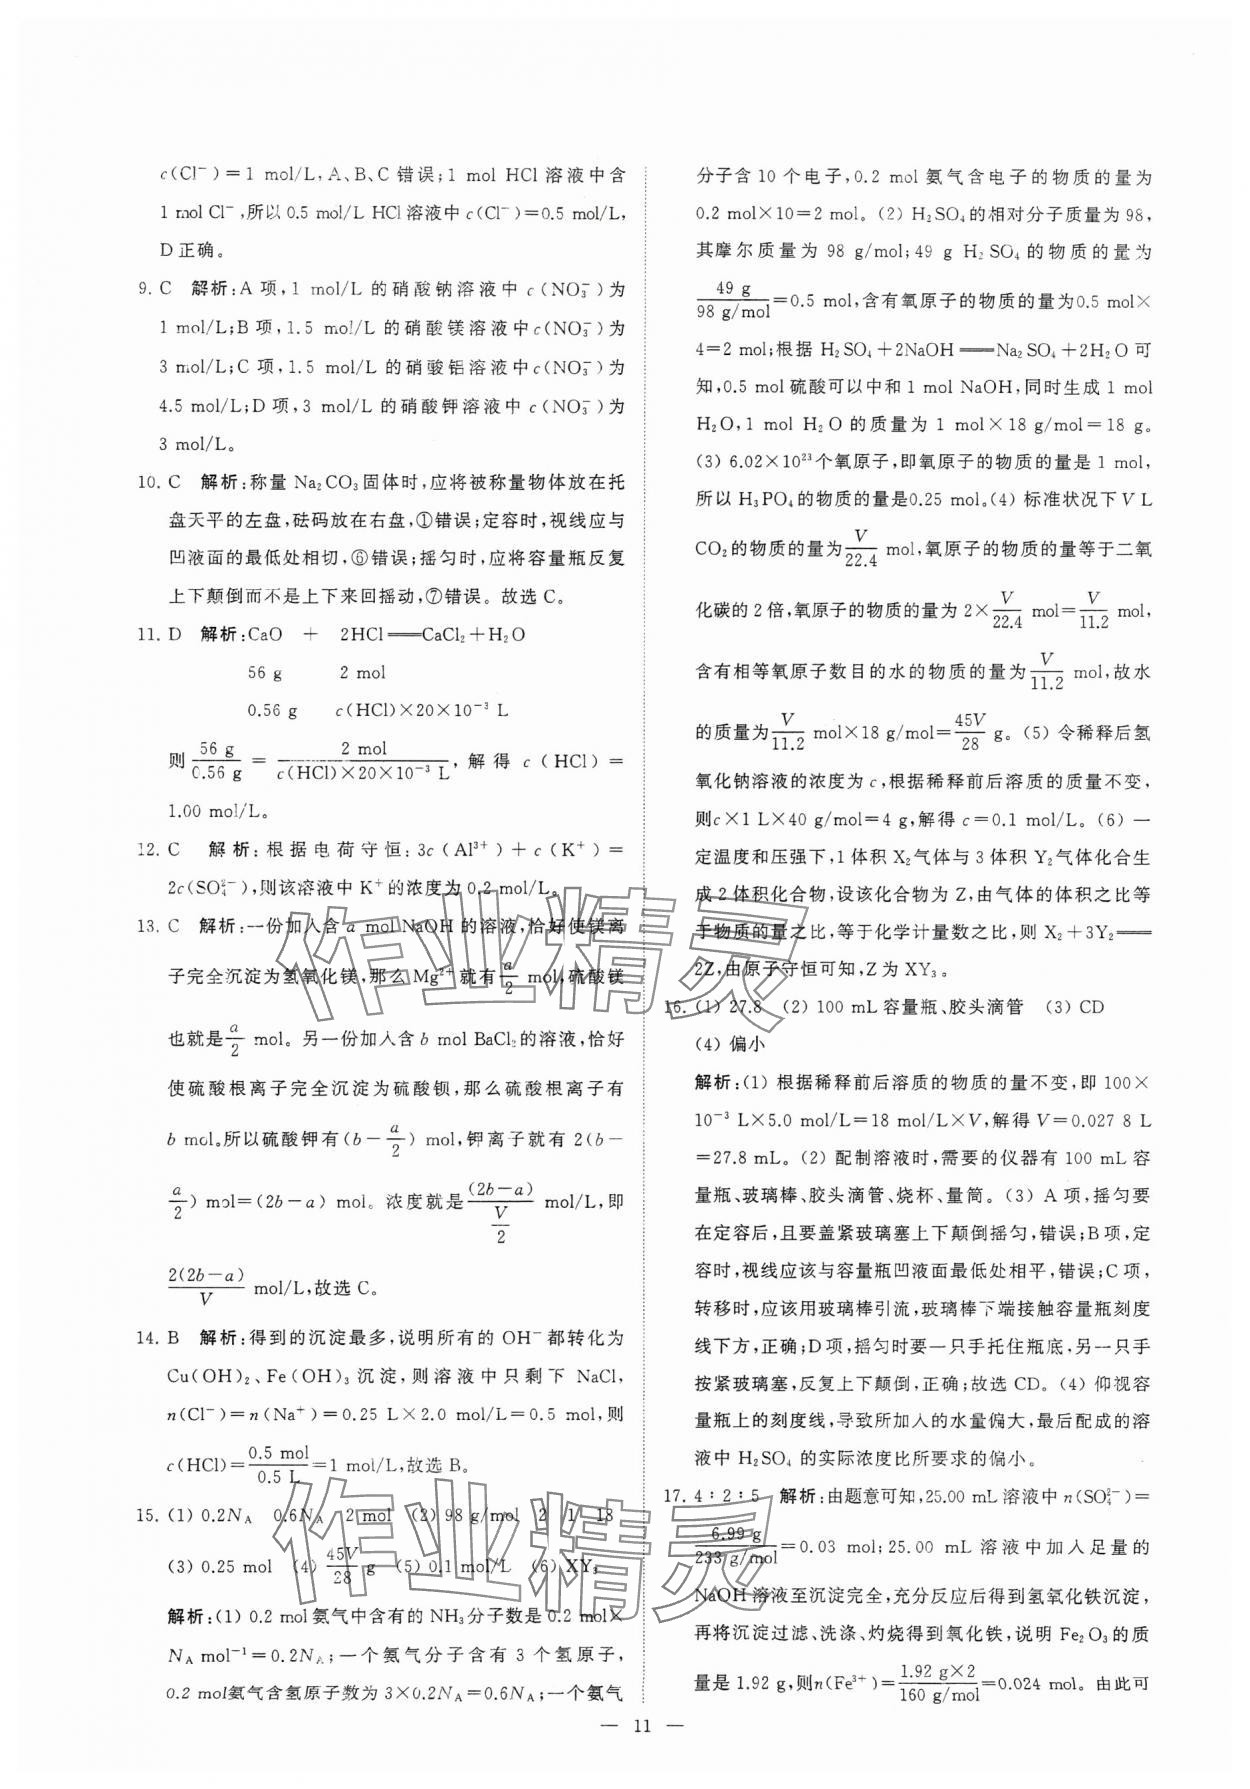 c(Cl⁻)=1 mol/L,A、B、C 错误;1 mol HCl 溶液中含
1 mol Cl⁻,所以 0.5 mol/L HCl 溶液中 c(Cl⁻)=0.5 mol/L,
D 正确。
9. C 解析:A 项,1 mol/L 的硝酸钠溶液中 c(NO₃⁻)为
1 mol/L;B 项,1.5 mol/L 的硝酸镁溶液中 c(NO₃⁻)为
3 mol/L;C 项,1.5 mol/L 的硝酸铝溶液中 c(NO₃⁻)为
4.5 mol/L;D 项,3 mol/L 的硝酸钾溶液中 c(NO₃⁻)为
3 mol/L。
10. C 解析:称量 Na₂CO₃ 固体时,应将被称量物体放在托
盘天平的左盘,砝码放在右盘,①错误;定容时,视线应与
凹液面的最低处相切,⑥错误;摇匀时,应将容量瓶反复
上下颠倒而不是上下来回摇动,⑦错误。故选 C。
11. D 解析:CaO + 2HCl══CaCl₂+H₂O
56 g 2 mol
0.56 g c(HCl)×20×10⁻³ L
则 56 g/0.56 g = 2 mol/(c(HCl)×20×10⁻³ L),解得 c(HCl)=
1.00 mol/L。
12. C 解析:根据电荷守恒:3c(Al³⁺)+c(K⁺)=
2c(SO₄²⁻),则该溶液中 K⁺的浓度为 0.2 mol/L。
13. C 解析:一份加入含 a mol NaOH 的溶液,恰好使镁离
子完全沉淀为氢氧化镁,那么 Mg²⁺就有 a/2 mol,硫酸镁
也就是 a/2 mol。另一份加入含 b mol BaCl₂的溶液,恰好
使硫酸根离子完全沉淀为硫酸钡,那么硫酸根离子有
b mol。所以硫酸钾有(b−a/2) mol,钾离子就有 2(b−
a/2) mol=(2b−a) mol。浓度就是 (2b−a)/(V/2) mol/L,即
2(2b−a)/V mol/L,故选 C。
14. B 解析:得到的沉淀最多,说明所有的 OH⁻都转化为
Cu(OH)₂、Fe(OH)₃沉淀,则溶液中只剩下 NaCl,
n(Cl⁻)=n(Na⁺)=0.25 L×2.0 mol/L=0.5 mol,则
c(HCl)=0.5 mol/0.5 L=1 mol/L,故选 B。
15. (1) 0.2Nᴀ 0.6Nᴀ 2 mol (2) 98 g/mol 2 1 18
(3) 0.25 mol (4) 45V/28 g (5) 0.1 mol/L (6) XY₃
解析:(1) 0.2 mol氨气中含有的 NH₃分子数是 0.2 mol×
Nᴀ mol⁻¹=0.2Nᴀ;一个氨气分子含有 3 个氢原子,
0.2 mol氨气含氢原子数为 3×0.2Nᴀ=0.6Nᴀ;一个氨气
分子含 10 个电子,0.2 mol 氨气含电子的物质的量为
0.2 mol×10=2 mol。(2) H₂SO₄的相对分子质量为 98,
其摩尔质量为 98 g/mol;49 g H₂SO₄ 的物质的量为
49 g/(98 g/mol)=0.5 mol,含有氧原子的物质的量为0.5 mol×
4=2 mol;根据 H₂SO₄+2NaOH══Na₂SO₄+2H₂O 可
知,0.5 mol硫酸可以中和 1 mol NaOH,同时生成 1 mol
H₂O,1 mol H₂O 的质量为 1 mol×18 g/mol=18 g。
(3) 6.02×10²³个氧原子,即氧原子的物质的量是 1 mol,
所以 H₃PO₄的物质的量是0.25 mol。(4) 标准状况下 V L
CO₂的物质的量为 V/22.4 mol,氧原子的物质的量等于二氧
化碳的 2 倍,氧原子的物质的量为 2×V/22.4 mol=V/11.2 mol,
含有相等氧原子数目的水的物质的量为 V/11.2 mol,故水
的质量为 V/11.2 mol×18 g/mol=45V/28 g。(5) 令稀释后氢
氧化钠溶液的浓度为 c,根据稀释前后溶质的质量不变,
则c×1 L×40 g/mol=4 g,解得 c=0.1 mol/L。(6) 一
定温度和压强下,1 体积 X₂气体与 3 体积 Y₂气体化合生
成 2 体积化合物,设该化合物为 Z,由气体的体积之比等
于物质的量之比,等于化学计量数之比,则 X₂+3Y₂══
2Z,由原子守恒可知,Z 为 XY₃。
16. (1) 27.8 (2) 100 mL 容量瓶、胶头滴管 (3) CD
(4) 偏小
解析:(1) 根据稀释前后溶质的物质的量不变,即 100×
10⁻³ L×5.0 mol/L=18 mol/L×V,解得 V=0.027 8 L
=27.8 mL。(2) 配制溶液时,需要的仪器有 100 mL 容
量瓶、玻璃棒、胶头滴管、烧杯、量筒。(3) A 项,摇匀要
在定容后,且要盖紧玻璃塞上下颠倒摇匀,错误;B 项,定
容时,视线应该与容量瓶凹液面最低处相平,错误;C 项,
转移时,应该用玻璃棒引流,玻璃棒下端接触容量瓶刻度
线下方,正确;D 项,摇匀时要一只手托住瓶底,另一只手
按紧玻璃塞,反复上下颠倒,正确;故选 CD。(4) 仰视容
量瓶上的刻度线,导致所加入的水量偏大,最后配成的溶
液中 H₂SO₄ 的实际浓度比所要求的偏小。
17. 4∶2∶5 解析:由题意可知,25.00 mL 溶液中 n(SO₄²⁻)=
6.99 g/(233 g/mol)=0.03 mol;25.00 mL 溶液中加入足量的
NaOH 溶液至沉淀完全,充分反应后得到氢氧化铁沉淀,
再将沉淀过滤、洗涤、灼烧得到氧化铁,说明 Fe₂O₃的质
量是 1.92 g,则n(Fe³⁺)=1.92 g×2/(160 g/mol)=0.024 mol。由此可
— 11 —
作业精灵
作业精灵